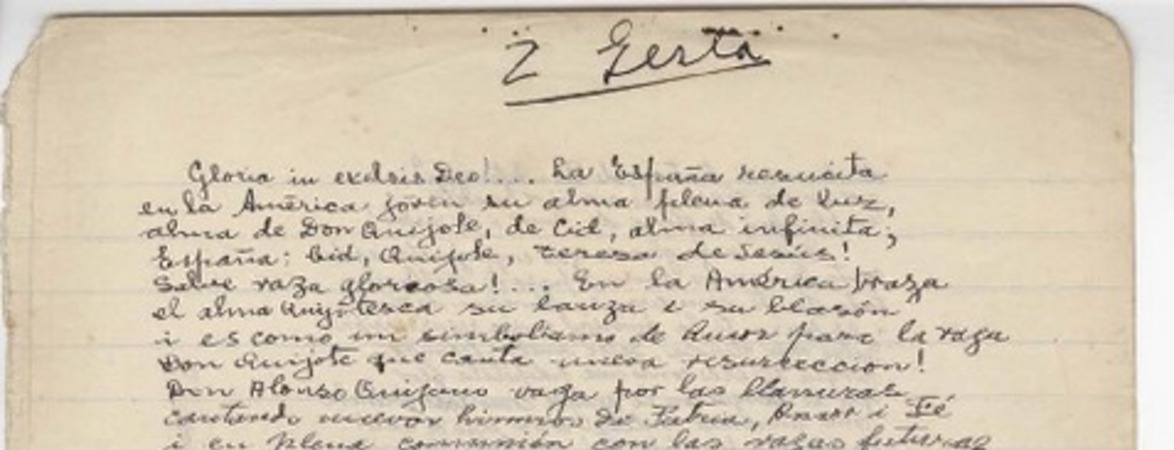 2 Gesta
Gloria in exelsis Deo!... La España resucita
en la América joven su alma plena de luz,
alma de Don Quijote, de Cid, alma infinita;
España: Cid, Quijote, Teresa de Jesús!
Salve raza gloriosa!... En la América traza
el alma Quijotesca su lanza i su blasón
i es como un simbolismo de Amor para la raza
Don Quijote que canta nueva resurreccion!
Don Alonso Quijano vaga por las llanuras
cantando nuevos himnos de Patria, Amor i Fé
i en plena comunión con las razas futuras